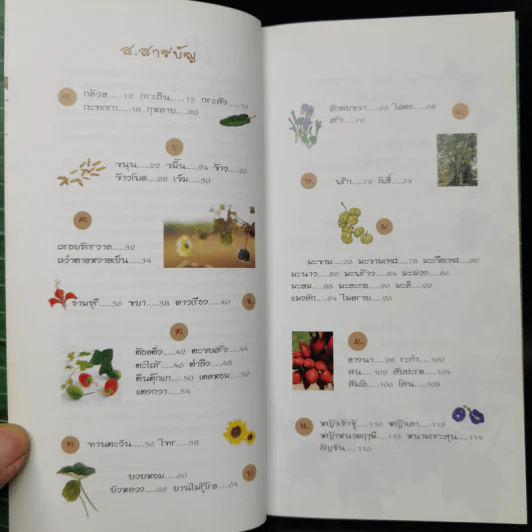 ส.สารบัญ
ก.
กล้วย.....12 กระถิน.....15 กระสัง.....16
กะทกรก.....18 กุหลาบ.....20
ข.
ขนุน.....22 ขมิ้น.....24 ข้าว.....26
ข้าวโพด.....28 เข็ม.....30
ค.
ครอบจักรวาล.....32
คว่ำตายหงายเป็น.....34
จามจุรี.....36 ชบา.....38 ดาวเรือง.....40
จ.
ต.
ต้อยติ่ง.....42 ตะขบฝรั่ง.....44
ตะไคร้.....46 ตำลึง.....48
ตีนตุ๊กแก.....50 เตยหอม.....52
แตงกวา.....54
ท.
ทานตะวัน.....56 ไทร.....58
บ.
บวบหอม.....60
บัวหลวง.....62 บานไม่รู้โรย.....64
ผักตบชวา.....66 ไผ่.....68
ฝรั่ง.....70
พ.
พริก.....72 โพธิ์.....74
ม.
มะขาม.....76 มะขามเทศ.....78 มะเขือเทศ.....80
มะนาว.....82 มะพร้าว.....84 มะม่วง.....86
มะยม.....88 มะละกอ.....90 มะลิ.....92
แมงลัก.....94 ไมยราบ.....96
ระกำ.....100
สน.....102 สับปะรด.....104
ส้มโอ.....106 โสน.....108
ห.
หญ้าเจ้าชู้.....110
หญ้าหนวดฤๅษี.....112 .....114
อัญชัน.....116